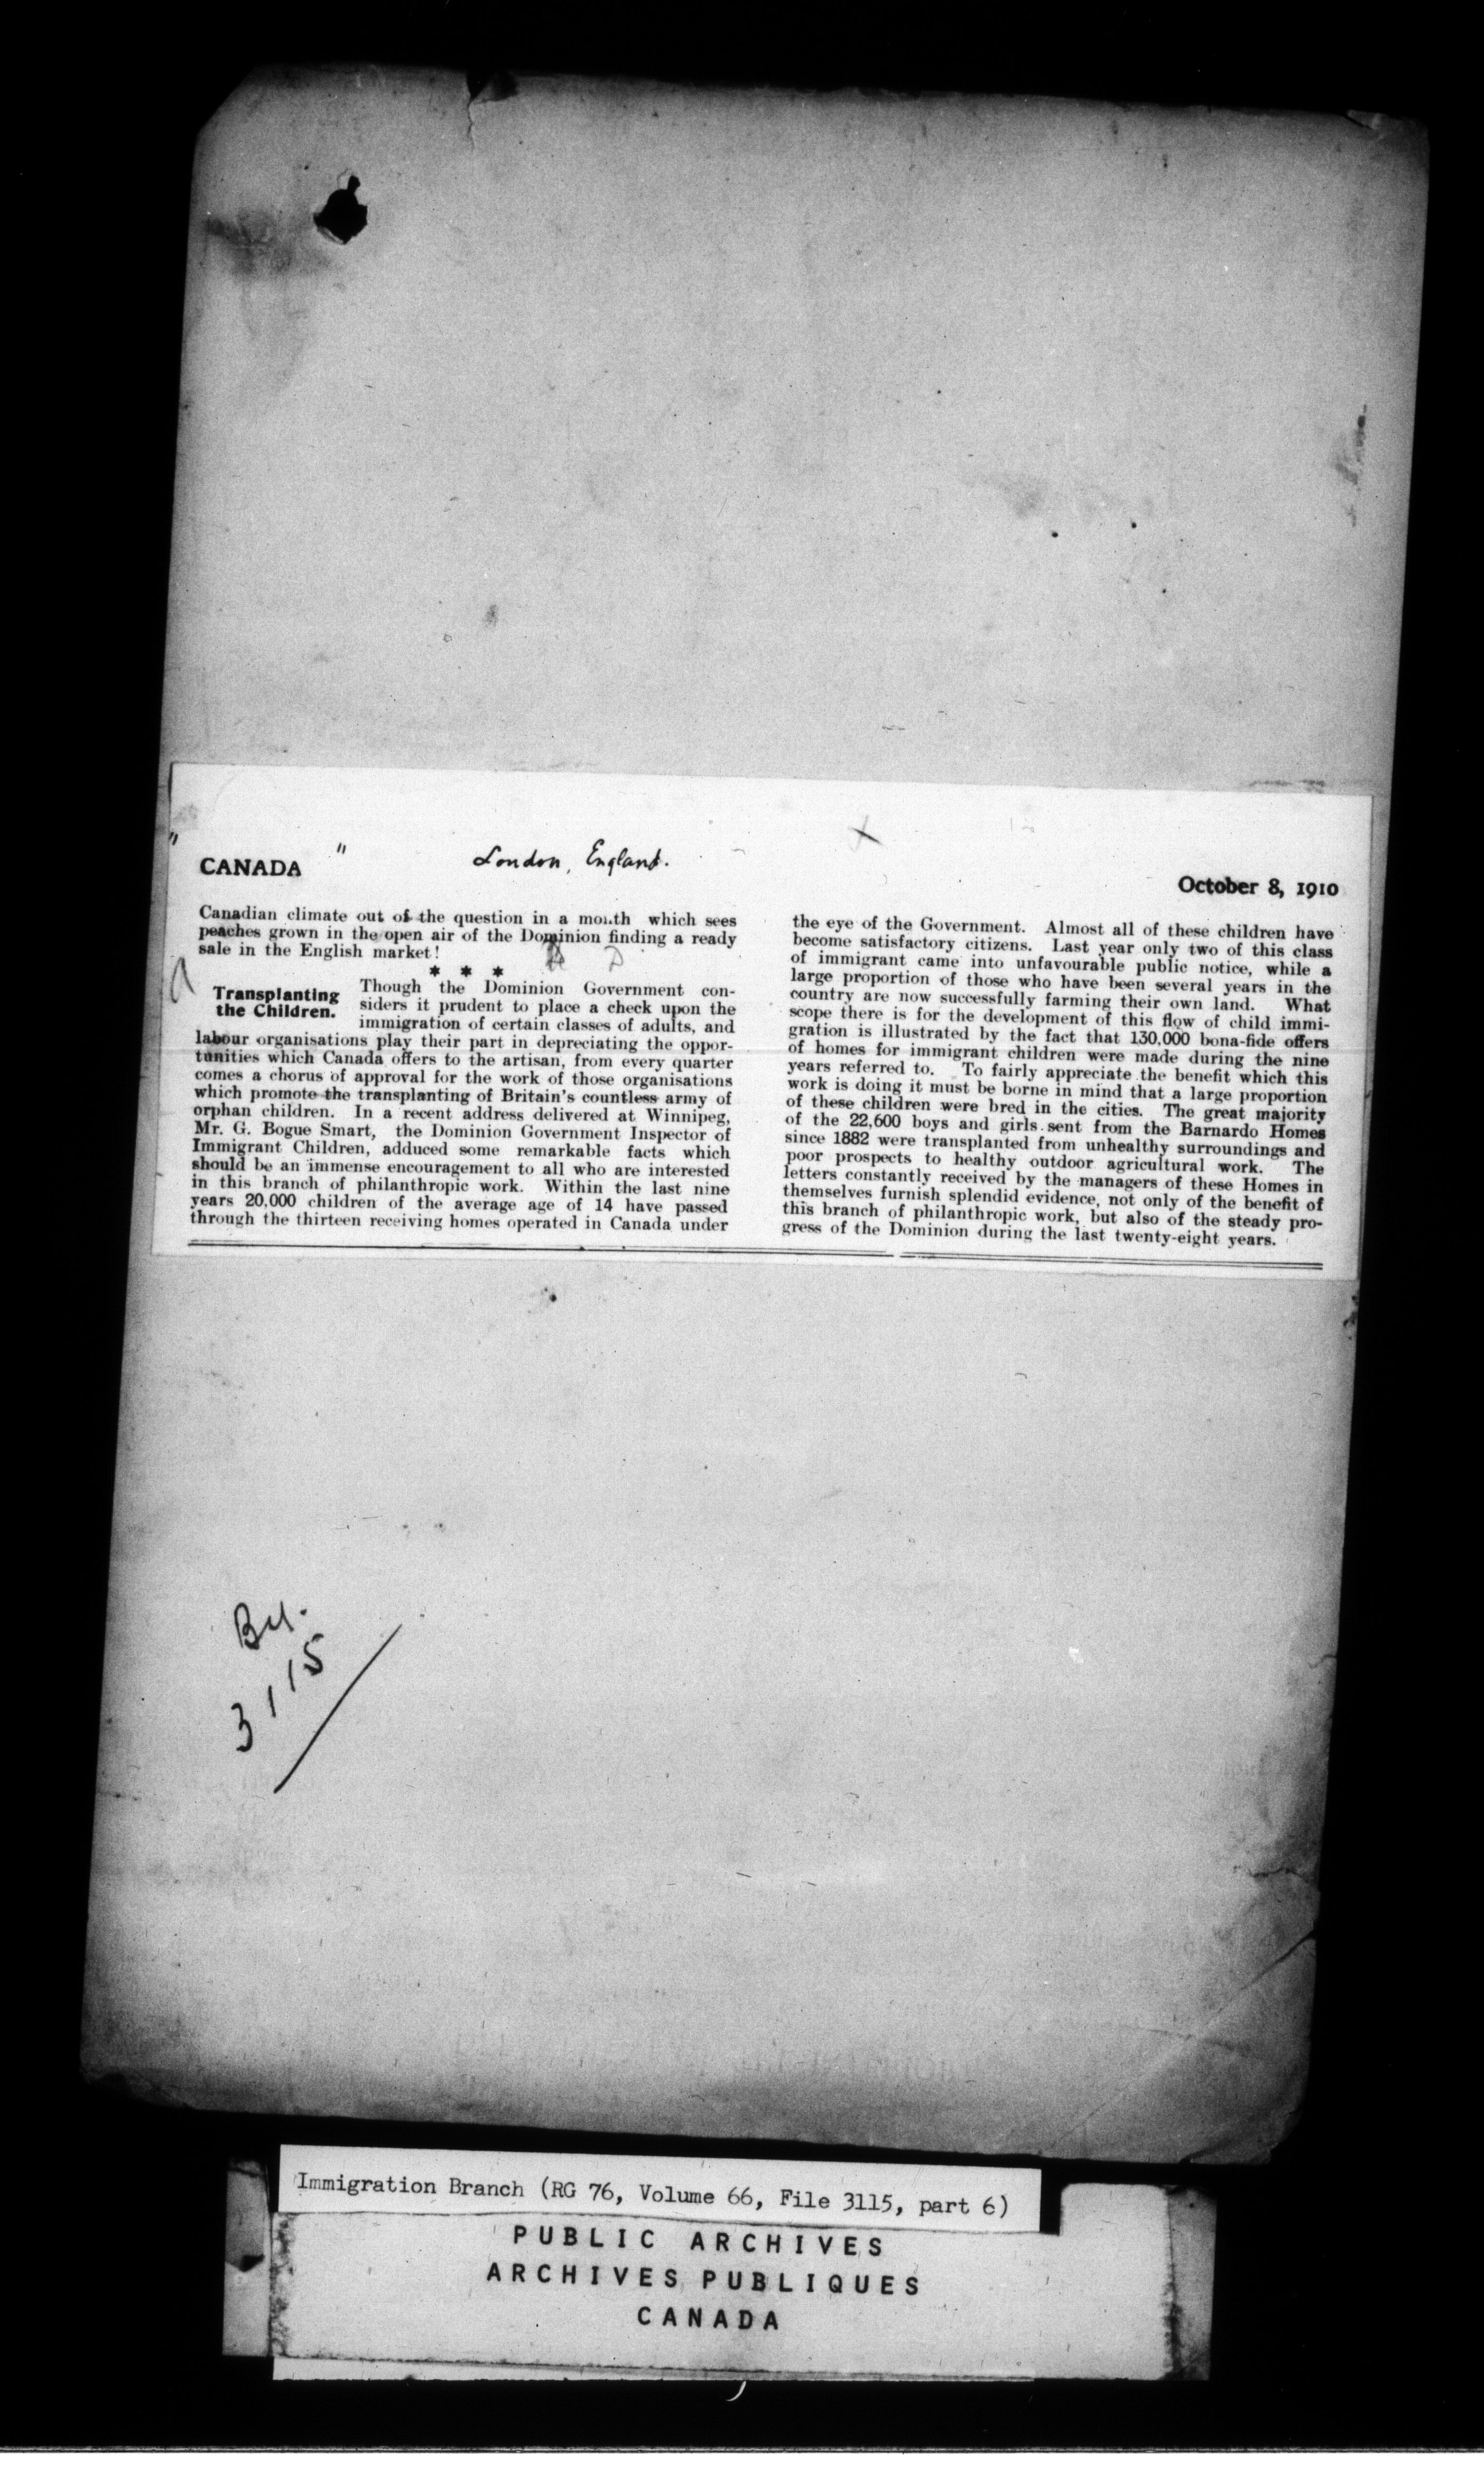 " CANADA "
London, England.
October 8, 1910
Canadian climate out of the question in a month which sees
peaches grown in the open air of the Dominion finding a ready
sale in the English market!
* * *
Transplanting
the Children.
Though the Dominion Government con-
siders it prudent to place a check upon the
immigration of certain classes of adults, and
labour organisations play their part in depreciating the oppor-
tunities which Canada offers to the artisan, from every quarter
comes a chorus of approval for the work of those organisations
which promote the transplanting of Britain's countless army of
orphan children. In a recent address delivered at Winnipeg,
Mr. G. Bogue Smart, the Dominion Government Inspector of
Immigrant Children, adduced some remarkable facts which
should be an immense encouragement to all who are interested
in this branch of philanthropic work. Within the last nine
years 20,000 children of the average age of 14 have passed
through the thirteen receiving homes operated in Canada under
the eye of the Government. Almost all of these children have
become satisfactory citizens. Last year only two of this class
of immigrant came into unfavourable public notice, while a
large proportion of those who have been several years in the
country are now successfully farming their own land. What
scope there is for the development of this flow of child immi-
gration is illustrated by the fact that 130,000 bona-fide offers
of homes for immigrant children were made during the nine
years referred to. To fairly appreciate the benefit which this
work is doing it must be borne in mind that a large proportion
of these children were bred in the cities. The great majority
of the 22,600 boys and girls sent from the Barnardo Homes
since 1882 were transplanted from unhealthy surroundings and
poor prospects to healthy outdoor agricultural work. The
letters constantly received by the managers of these Homes in
themselves furnish splendid evidence, not only of the benefit of
this branch of philanthropic work, but also of the steady pro-
gress of the Dominion during the last twenty-eight years.
3115
Immigration Branch (RG 76, Volume 66, File 3115, part 6)
PUBLIC ARCHIVES
ARCHIVES PUBLIQUES
CANADA